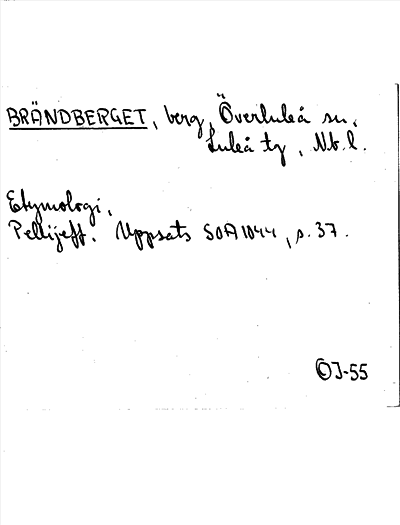 BRÄNDBERGET, berg, Överluleå sn,
Luleå tg, Nb. l.
Etymologi,
Pellijeff. Uppsats SOA 1044, s. 37.
OJ-55